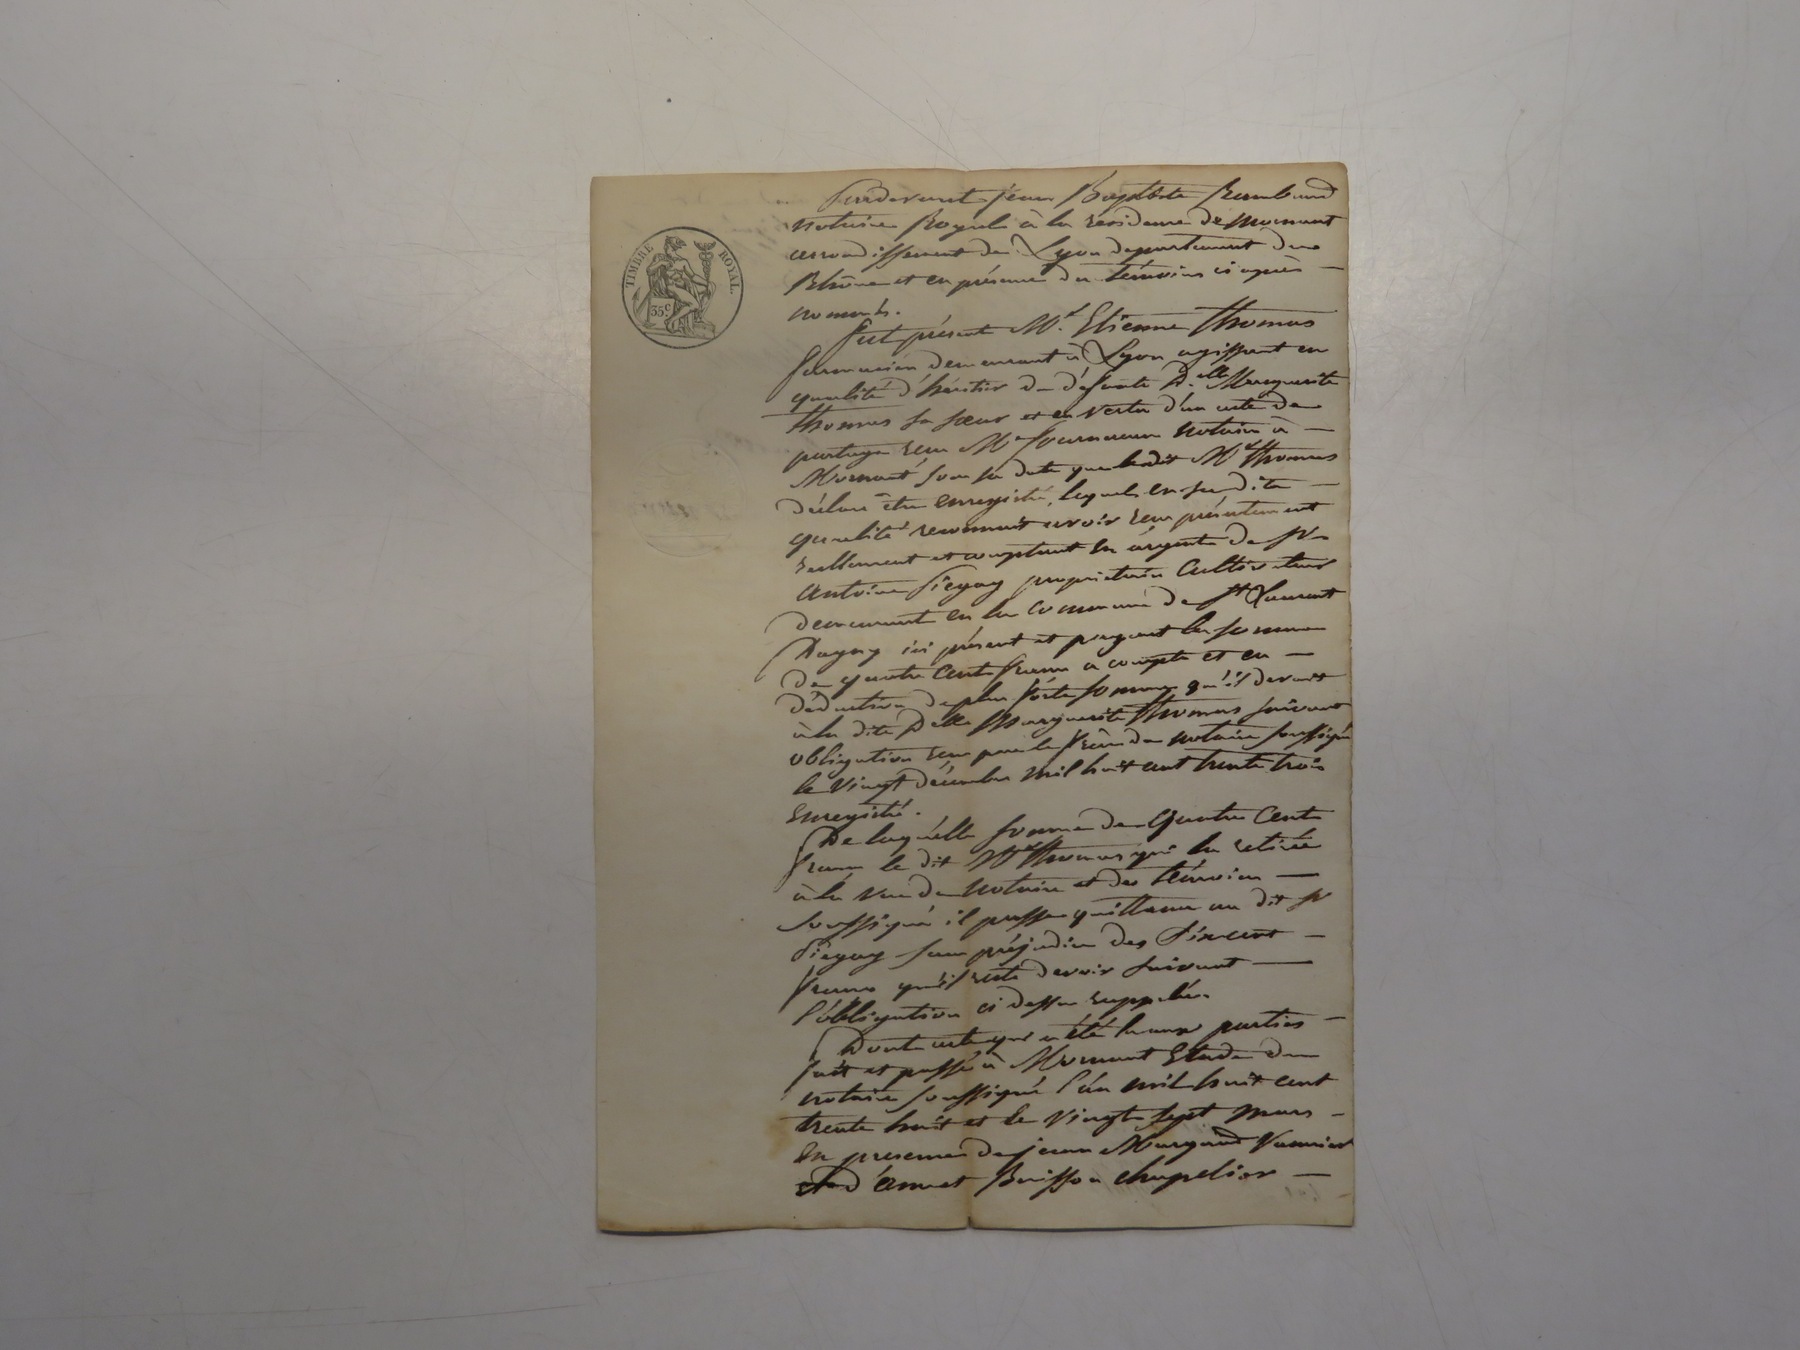 TIMBRE ROYAL
35c
Pardevant jean Baptiste Rambaud
notaire Royal à la residence de mornant
arrondissement de Lyon departement du
Rhône et en présence des témoins ci après
nommés.
fut présent Mr. Etienne Thomas
demeurant à Lyon agissant en
qualité d'héritier de défunte Delle Marguerite
Thomas sa sœur et en vertu d'un acte de
partage reçu Me notaire à
Mornant sous sa date que ledit Mr Thomas
déclare être enregistré, lequel en sa dite
qualité reconnait avoir reçu présentement
reellement et comptant en argent de Sr
antoine Piegay propriétaire Cultivateur
demeurant en la commune de St Laurent
Dagny ici présent et payant la somme
de quatre Cent francs a compte et en
déduction de plus forte somme qu'il devait
à la dite Delle Marguerite Thomas suivant
obligation reçu par le notaire soussigné
le vingt décembre mil huit cent trente trois
Enregistré.
De laquelle somme de Quatre Cent
francs le dit Mr Thomas qui la retirée
à la vue du notaire et des témoins
soussignés il passe quittance au dit Sr
Piegay sans préjudice des Six cent
francs qu'il reste devoir suivant
l'obligation ci dessus rappelée.
Dont acte qui a été lu aux parties
fait et passé à Mornant Etude du
notaire soussigné l'an mil huit cent
trente huit et le vingt sept mars
En presence de jean Vannier
d'annet Buisson chapelier